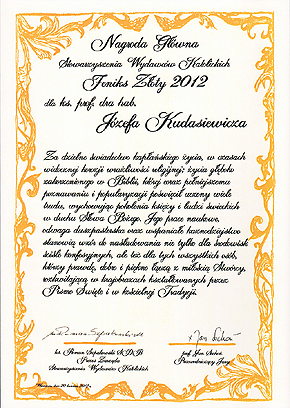 Nagroda Główna
Stowarzyszenia Wydawców Katolickich
Feniks Złoty 2012
dla ks. prof. dra hab.
Józefa Kudasiewicza
Za dzielne świadectwo kapłańskiego życia, w czasach
widocznej korozji wrażliwości religijnej; życia głęboko
zakorzenionego w Biblii, której coraz pełniejszemu
poznawaniu i popularyzacji poświęcił uczony wiele
trudu, wychowując pokolenia księży i ludzi świeckich
w duchu Słowa Bożego. Jego prace naukowe,
odwaga duszpasterska oraz wspaniałe kaznodziejstwo
stanowią wzór do naśladowania nie tylko dla środowisk
ściśle konfesyjnych, ale też dla tych wszystkich osób,
którzy prawdę, dobro i piękno łączą z miłością Stwórcy,
rozkwitającą w krajobrazach kształtowanych przez
Pismo Święte i w kościelnej Tradycji.
ks. Roman Szpakowski SDB
Prezes Zarządu
Stowarzyszenia Wydawców Katolickich
prof. Jan
Przewodniczący Jury
Warszawa, dn. 20 2012 r.